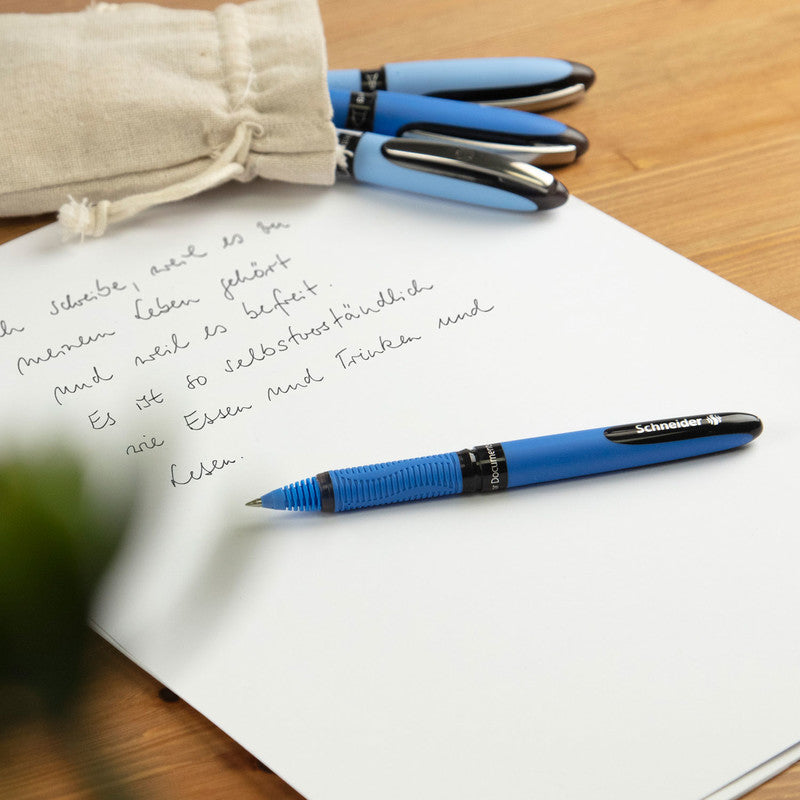 ch schreibe, weil es zu
meinem Leben gehört
und weil es befreit.
Es ist so selbstverständlich
wie Essen und Trinken und
Lesen.
Schneider
r Document